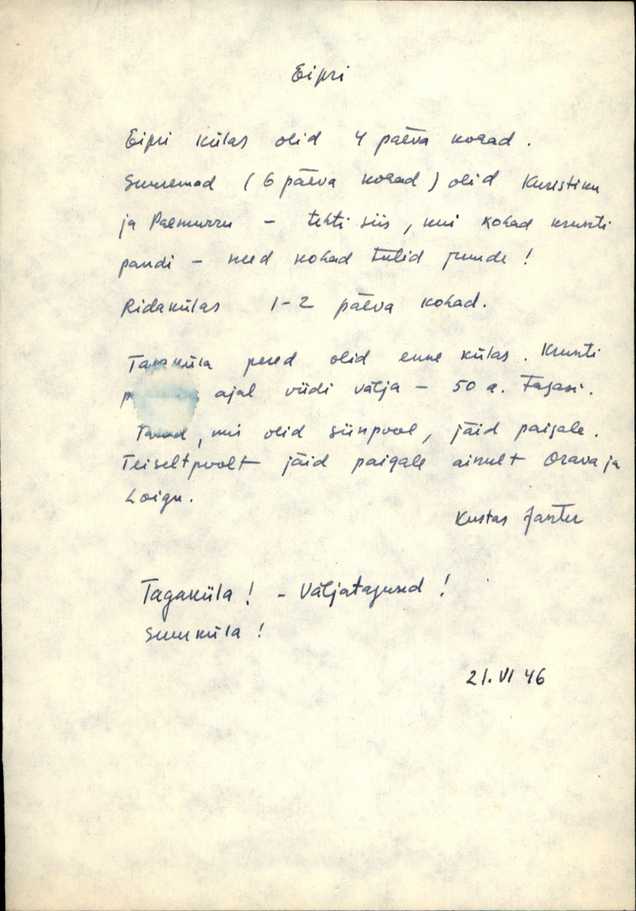 Eipri
Eipri külas olid 4 päeva kohad.
Suuremad (6 päeva kohad) olid Kuristiku
ja Paemurru – tehti siis, kui kohad krunti
pandi – need kohad tulid juurde!
Ridakülas 1-2 päeva kohad.
Tagaküla pered olid enne külas. Krunti
ajal viidi välja – 50 a. tagasi.
mis olid siinpool, jäid paigale.
Teiseltpoolt jäid paigale ainult Orava ja
Loigu.
Kustas
Tagaküla! – Väljatagused!
Suurküla!
21. VI 46